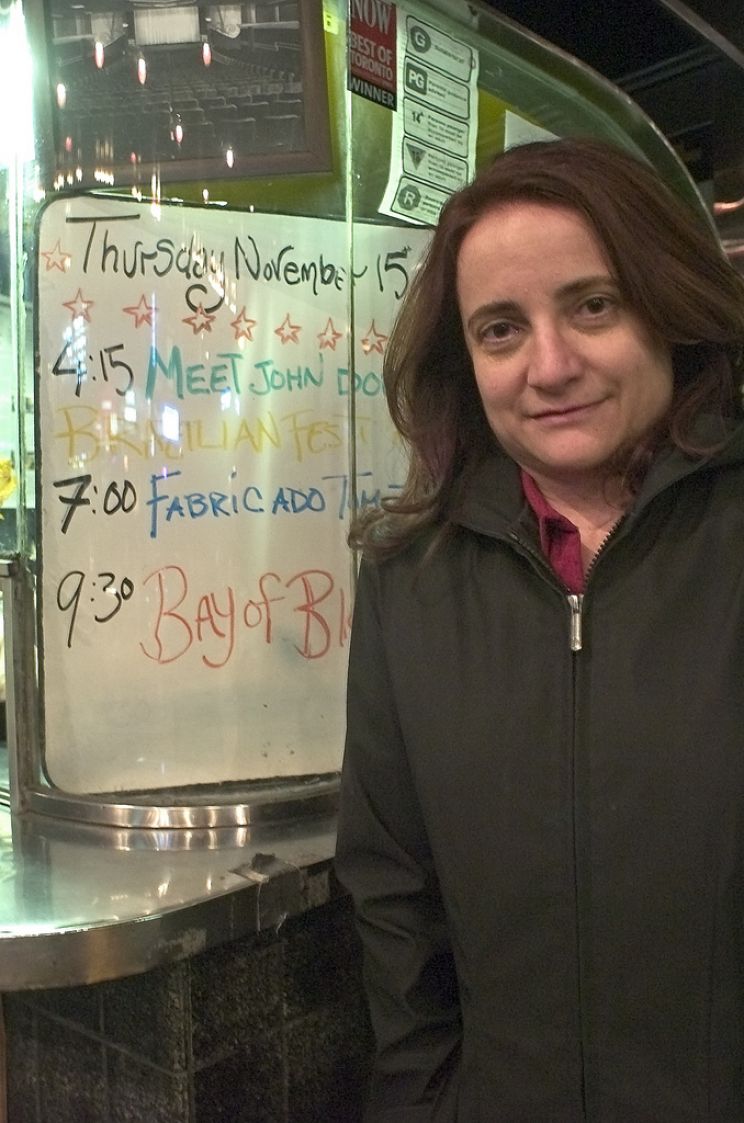 NOW
BEST OF
TORONTO
WINNER
G
PG
14
18
R
Thursday November 15
4:15 MEET JOHN DO
BRAZILIAN FEST
7:00 FABRICADO
9:30 BAY of